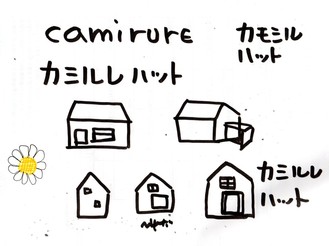 camirure
カモミル
ハット
カミルレ ハット
カミルレ
ハット